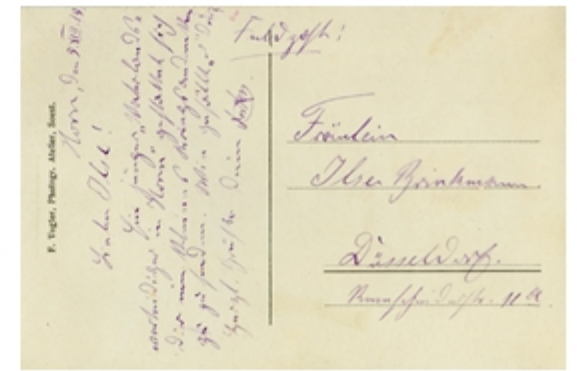 F. Vogler, Photogr. Atelier, Soest.
Horn, den
Liebe Ilse!
Ein junger „Vaterlands-
verteidiger in Horn“ gestattet sich
Dir ein kleines
zu senden. Wie gefällt es
Herzl. Grüße Dein
Feldpost!
Fräulein
Ilse Brinkmann
Düsseldorf.
11